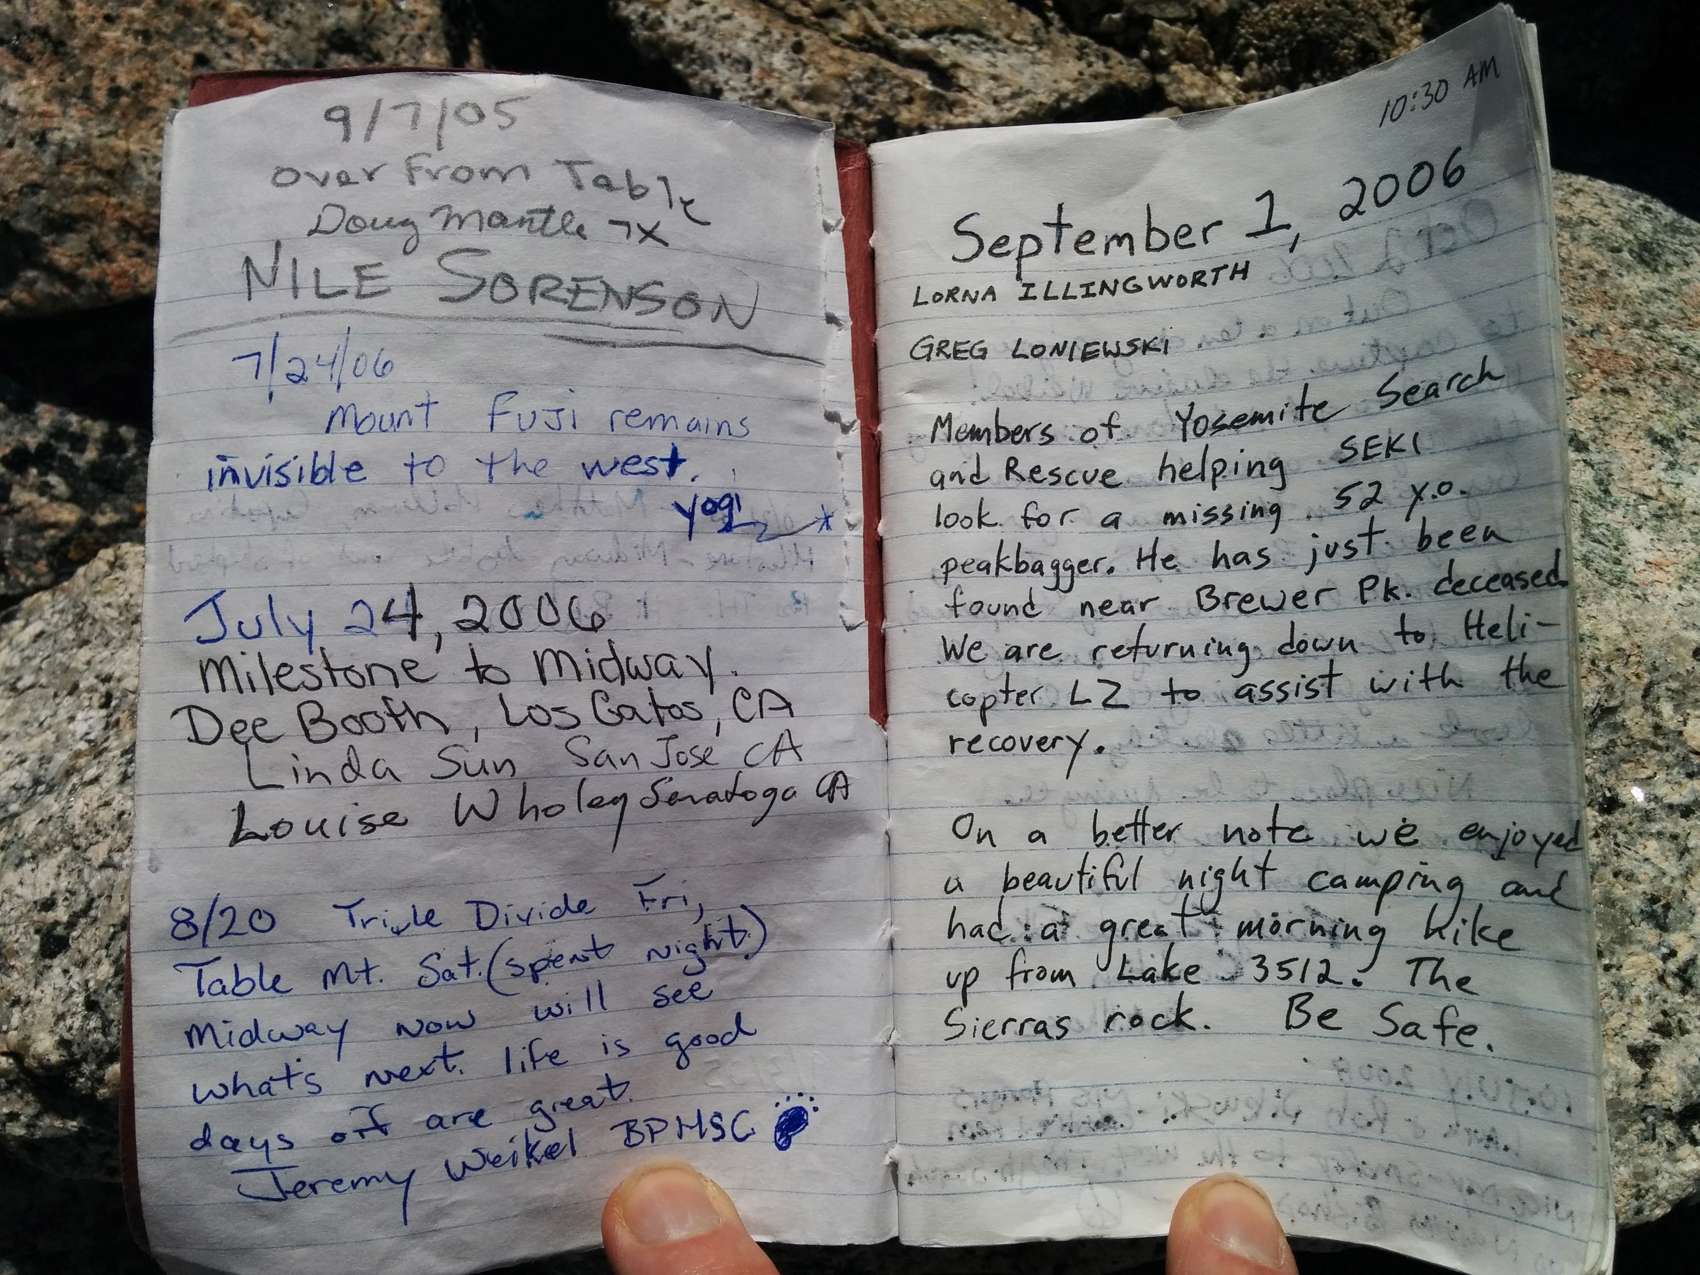 9/7/05
over From Table
Doug Mantle 7X
NILE SORENSON
7/24/06
Mount Fuji remains
invisible to the west.
yogi
July 24, 2006
Milestone to Midway.
Dee Booth, Los Gatos, CA
Linda Sun San Jose CA
Louise Wholey Saratoga CA
8/20 Triple Divide Fri,
Table Mt. Sat. (spent night)
Midway now will see
what's next. life is good
days off are great.
Jeremy Weikel BPMSC
10:30 AM
September 1, 2006
LORNA ILLINGWORTH
GREG LONIEWSKI
Members of Yosemite Search
and Rescue helping SEKI
look for a missing 52 y.o.
peakbagger. He has just been
found near Brewer Pk. deceased
We are returning down to Heli-
copter LZ to assist with the
recovery.
On a better note we enjoyed
a beautiful night camping and
had a great morning hike
up from Lake 3512. The
Sierras rock. Be Safe.